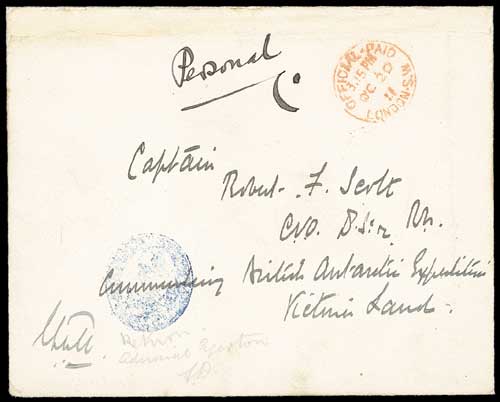 Personal
OFFICIAL-PAID LONDON.S.W.
3.15 PM
DC 20
11
Captain
Robert F. Scott
C.V.O. D.S.O. R.N.
Commanding British Antarctic Expedition
Victoria Land.
Admiral Egerton